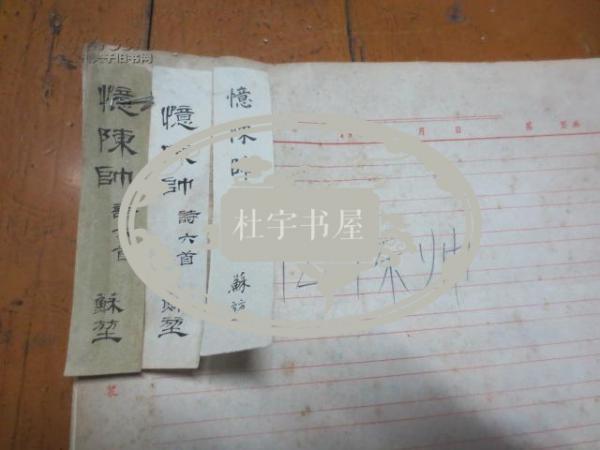 子旧书网
憶陳帥 詩六首 蘇堃
憶陳帥 詩六首 蘇堃
憶陳帥 蘇
杜宇书屋
月 日 第
忆陈帅